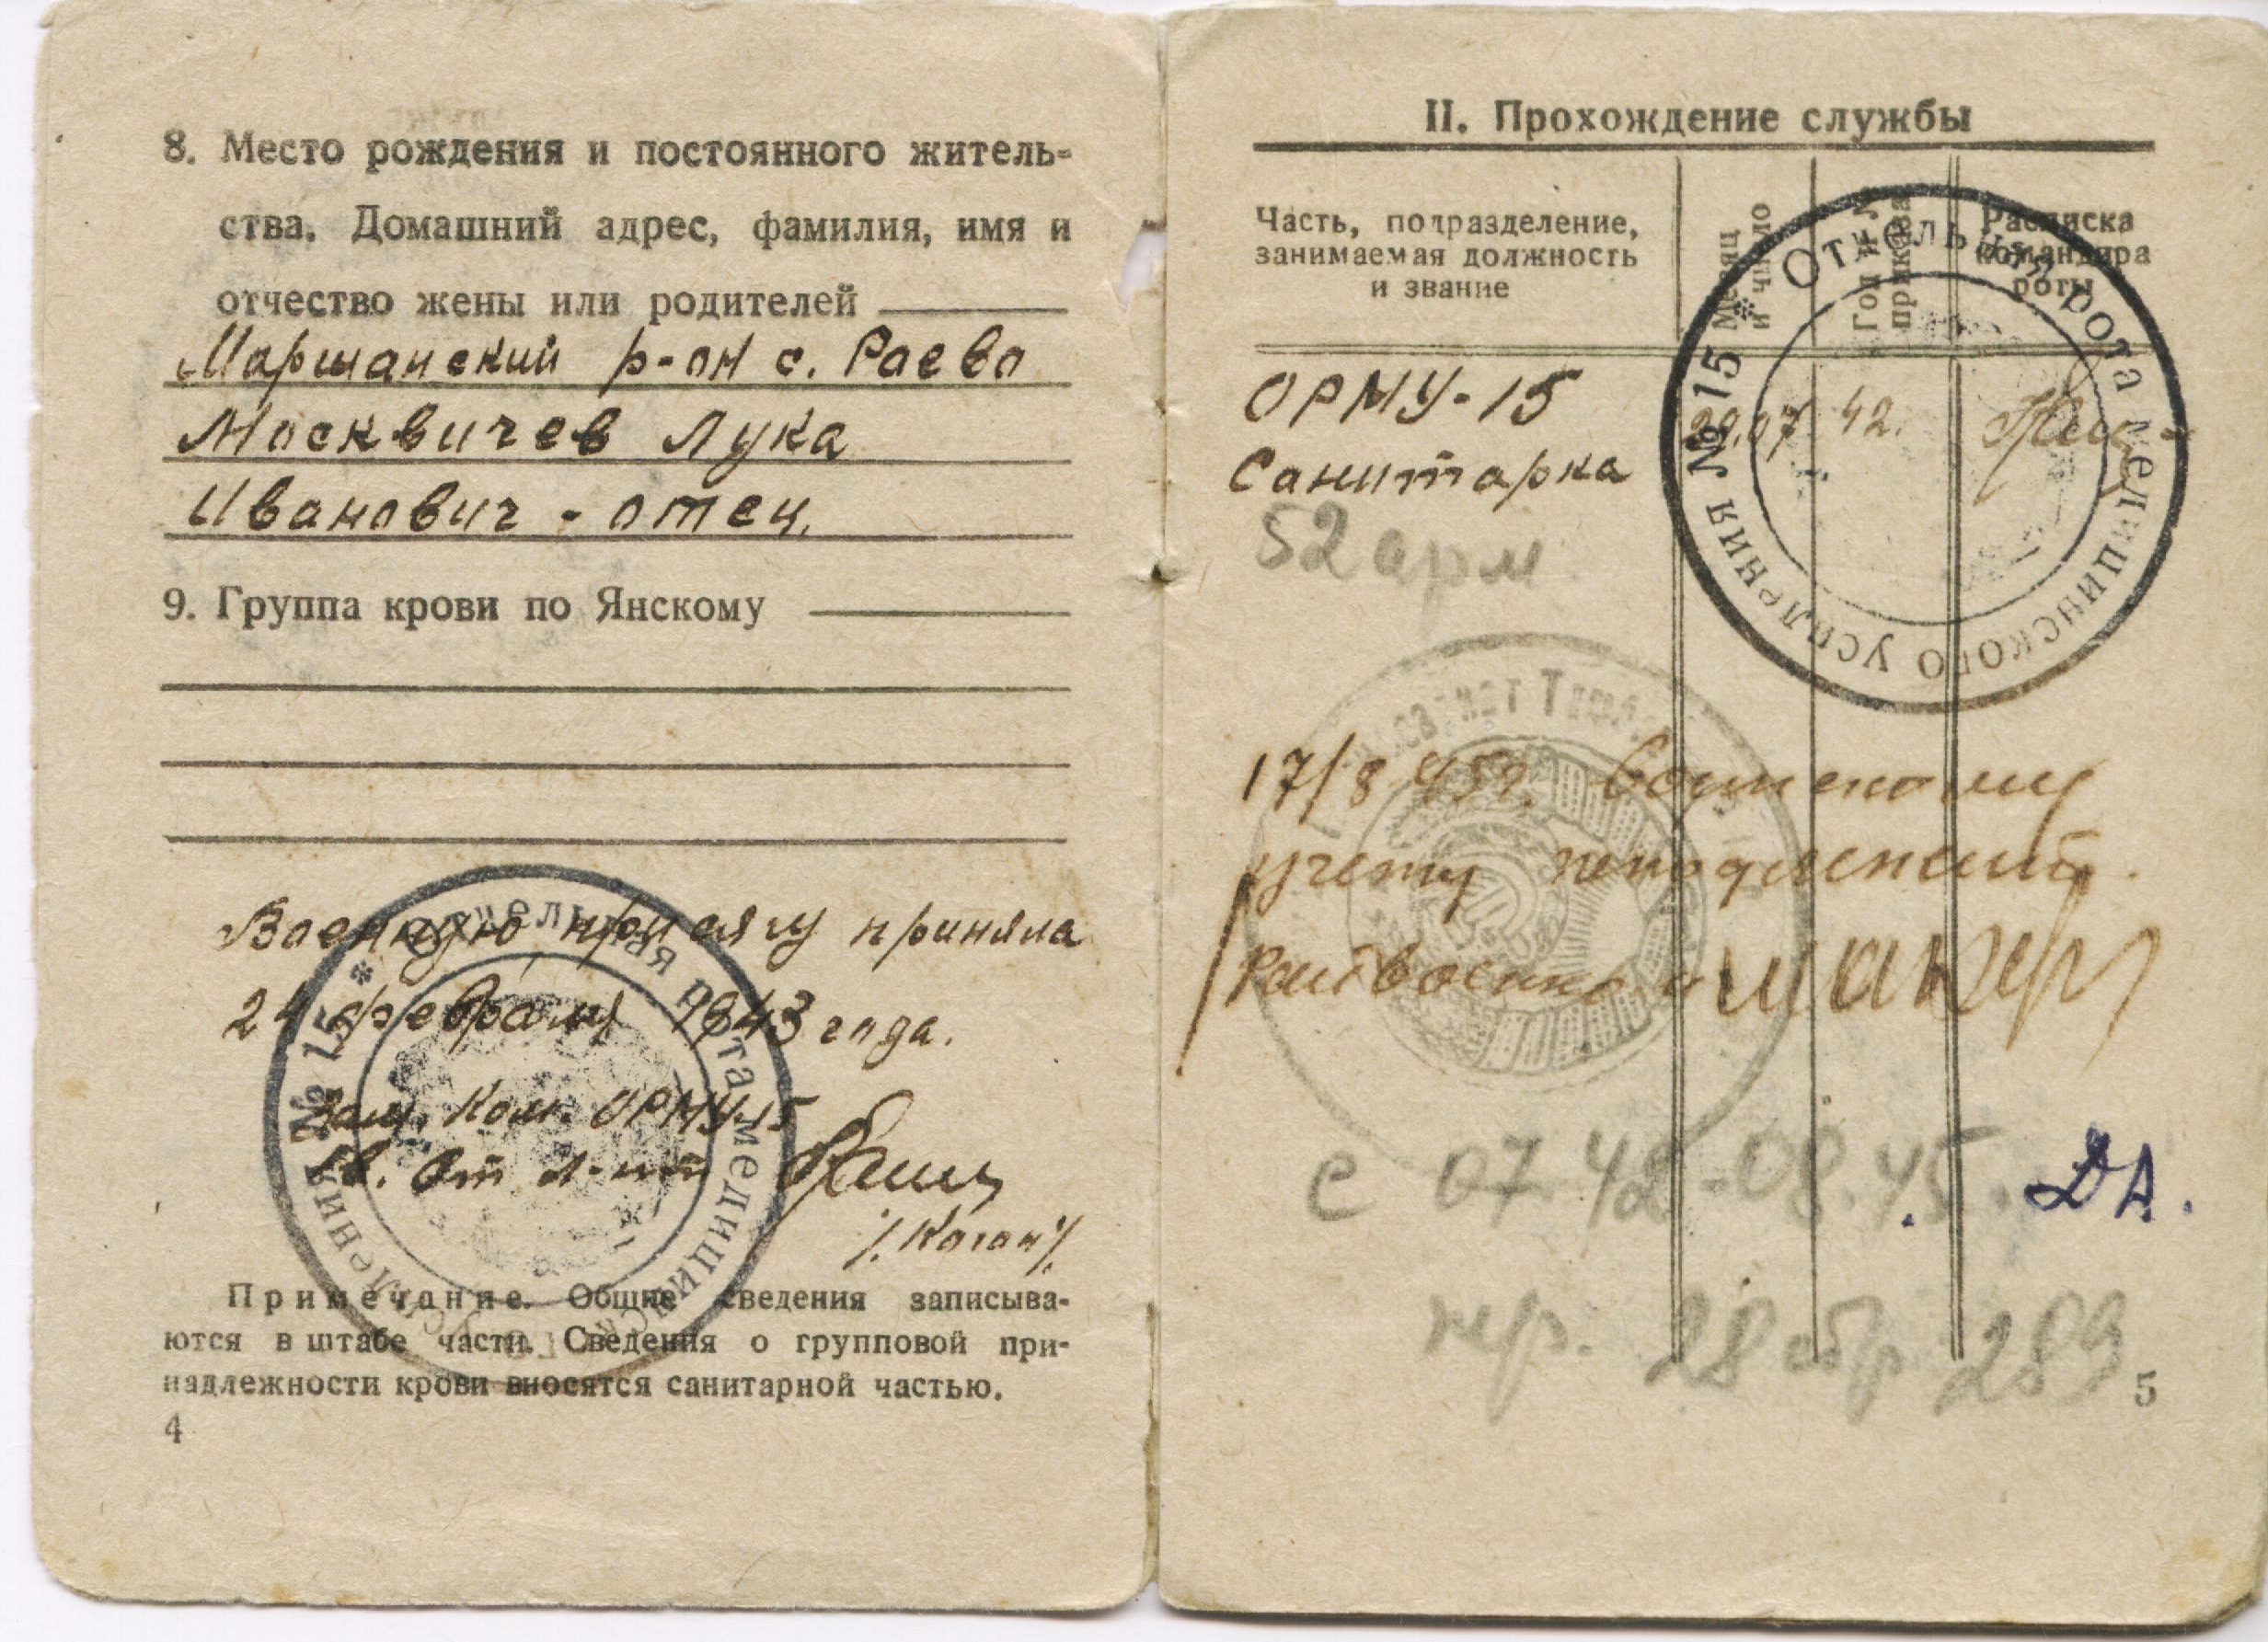 8. Место рождения и постоянного житель-
ства. Домашний адрес, фамилия, имя и
отчество жены или родителей
Маршанский р-он с. Раево
Москвичев Лука
Иванович - отец.
9. Группа крови по Янскому
Военную присягу приняла
24 февраля 1943 года.
Зам. Ком. ОРМУ-15
Ст л-нт
/. Коган /.
Примечание. Общие сведения записыва-
ются в штабе части. Сведения о групповой при-
надлежности крови вносятся санитарной частью.
4
* Отдельная рота медицинского усиления № 15
II. Прохождение службы
Часть, подразделение,
занимаемая должность
и звание
Месяц
и число
Год и №
приказа
Расписка
командира
роты
ОРМУ-15
Санитарка
29.07 42.
52 арм
* Отдельная рота медицинского усиления № 15
17/8 45г. воинскому
учету неподлежит.
Райвоенком
с 07.42 - 08.45. ДА.
пер. 28 обр 289
5